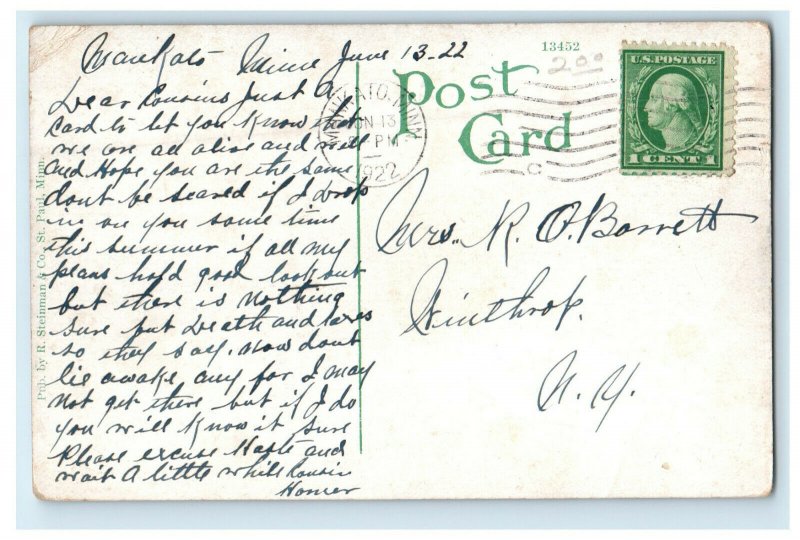 Mankato Minn June 13-22
Dear Cousins Just A
card to let you know that
we are all alive and will
and Hope you are the same
dont be scared if I drop
in on you some time
this summer if all my
plans hold good look out
but there is nothing
sure but death and taxes
so they say. now dont
lie awake any for I may
not get there but if I do
you will know it sure
Please excuse Haste and
wait A little while Cousin
Homer
Pub. by R. Steinman & Co., St. Paul, Minn.
13452
Post
Card
200
MANKATO, MINN.
JUN 13
PM
1922
U.S. POSTAGE
1 CENT 1
Mrs. R. O. Barrett
Winthrop.
N. Y.